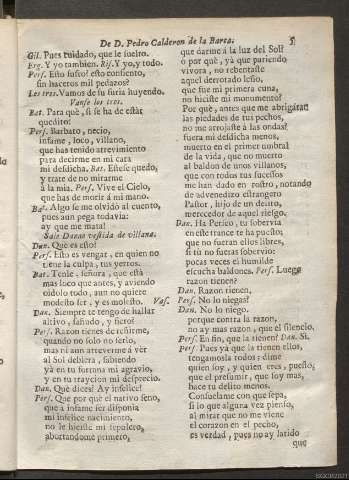 De D. Pedro Calderon de la Barca. 5
Gil. Pues cuidado, que le suelto.
Erg. Y yo tambien. Ris. Y yo, y todo.
Pers. Esto sufro? esto consiento,
sin haceros mil pedazos?
Les tres. Vamos de su furia huyendo.
Vanse los tres.
Bat. Para què, si se ha de estàr
quedito?
Pers. Barbato, necio,
infame, loco, villano,
que has tenido atrevimiento
para decirme en mi cara
mi desdicha. Bat. Estese quedo,
y trate de no mirarme
à la mia. Pers. Vive el Cielo,
que has de morir à mi mano.
Bat. Algo se me olvidò al cuento,
pues aun pega todavia:
ay que me mata!
Sale Danae vestida de villana.
Dan. Què es esto?
Pers. Esto es vengar, en quien no
tiene la culpa, tus yerros.
Bat. Tenle, señora, que està
mas loco que antes, y aviendo
oidolo todo, aun no quiere
modesto ser, y es molesto. Vas.
Dan. Siempre te tengo de hallar
altivo, sañudo, y fiero!
Pers. Razon tienes de reñirme,
quando no solo no serlo,
mas ni aun atreverme à vèr
al Sol debiera, sabiendo
yà en tu fortuna mi agravio,
y en tu traycion mi desprecio.
Dan. Què dices? Ay infelice!
Pers. Que por què el nativo seno,
que à infame ser disponia
mi infelice nacimiento,
no le hiciste mi sepulcro,
abortandome primero,
que darme à la luz del Sol?
ò por què, yà que pariendo
vivora, no rebentaste
aquel derrotado leño,
que fue mi primera cuna,
no hiciste mi monumento?
Por què, antes que me abrigàran
las piedades de tus pechos,
no me arrojaste à las ondas?
fuera mi desdicha menos,
muerto en el primer umbral
de la vida, que no muerto
al baldon de unos villanos,
que con todos tus sucessos
me han dado en rostro, notando
de advenedizo estrangero
Pastor, hijo de un delito,
mercedor de aquel riesgo.
Dan. Ha Perseo, tu sobervia
en este trance te ha puestos,
que no fueran ellos libres,
si tù no fueras sobervio:
pocas veces el humilde
escucha baldones. Pers. Luego
razon tienen?
Dan. Razon tienen,
Pers. No lo niegas?
Dan. No lo niego.
porque contra la razon,
no ay mas razon, que el silencio.
Pers. En fin, que la tienen? Dan. Sì.
Pers. Pues yà que la tienen ellos,
tengamosla todos: dime
quien soy, y quien eres, puesto,
que el presumir, que soy mas,
hace tu delito menos.
Consuelame con que sepa,
si lo que alguna vez pienso,
al mirar que no me viene
el corazon en el pecho,
es verdad, pues no ay latido
que